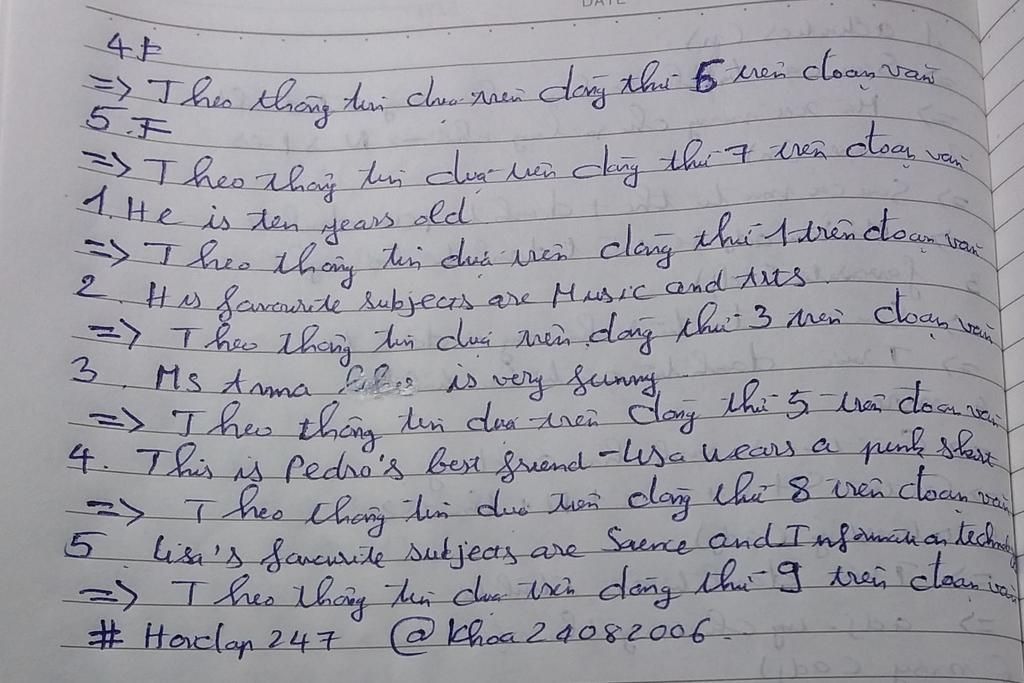 DATE
4. F
=> Theo thông tin dựa trên dòng thứ 6 trên đoạn văn
5. F
=> Theo thông tin dựa trên dòng thứ 7 trên đoạn văn
1. He is ten years old
=> Theo thông tin dựa trên dòng thứ 1 trên đoạn văn
2. His favourite subjects are Music and Arts.
=> Theo thông tin dựa trên dòng thứ 3 trên đoạn văn
3. Ms Anna is very funny
=> Theo thông tin dựa trên dòng thứ 5 trên đoạn văn
4. This is Pedro's best friend - Lisa wears a pink skirt
=> Theo thông tin dựa trên dòng thứ 8 trên đoạn văn
5 Lisa's favourite subjects are Science and Information technology
=> Theo thông tin dựa trên dòng thứ 9 trên đoạn văn
# Hoidap247 @Khoa24082006